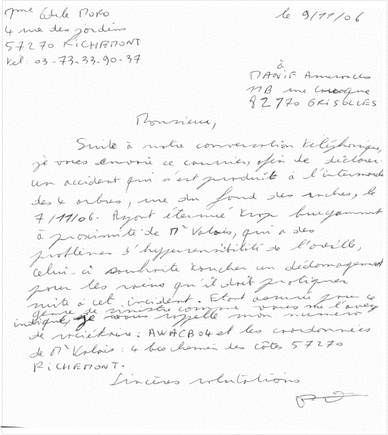 Mme Edile MORO
le 9/11/06
4 rue des jardins
57270 RICHEMONT
tel. 03-73-33-90-37
à
MANIF Assurances
11B rue
82170 GRISOLLES
Monsieur,
Suite à notre conversation téléphonique,
je vous envoie ce courrier, afin de déclarer
un accident qui s'est produit à l'intermarché
des 4 arbres, rue du fond des roches, le
7/11/06. Ayant éternué trop bruyamment
à proximité de Mr Valois, qui a des
problèmes d'hypersensibilité de l'oreille,
celui-ci souhaite toucher un dédommagement
pour les soins qu'il doit pratiquer
suite à cet incident. Etant assurée pour ce
genre de sinistre comme vous me l'avez
indiqué, je vous rappelle mon numéro
de sociétaire: AWACB04 et les coordonnées
de Mr Valois: 4 bis chemin des côtes 57270
RICHEMONT.
Sincères salutations